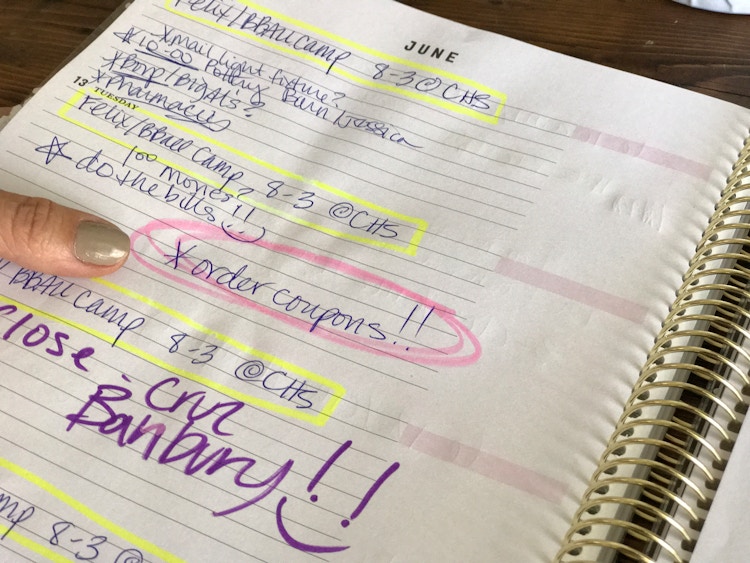 JUNE
Felix/BBall Camp 8-3 @ CHS
*mail light fixture?
*10-00 Pottery Barn Jessica
*Pharmacies
13 TUESDAY
Felix/BBall Camp 8-3 @ CHS
100 movies?
*do the bills!!
*order coupons!!
BBall camp 8-3 @CHS
close - Cruz
Banbury!!
mp 8-3 @